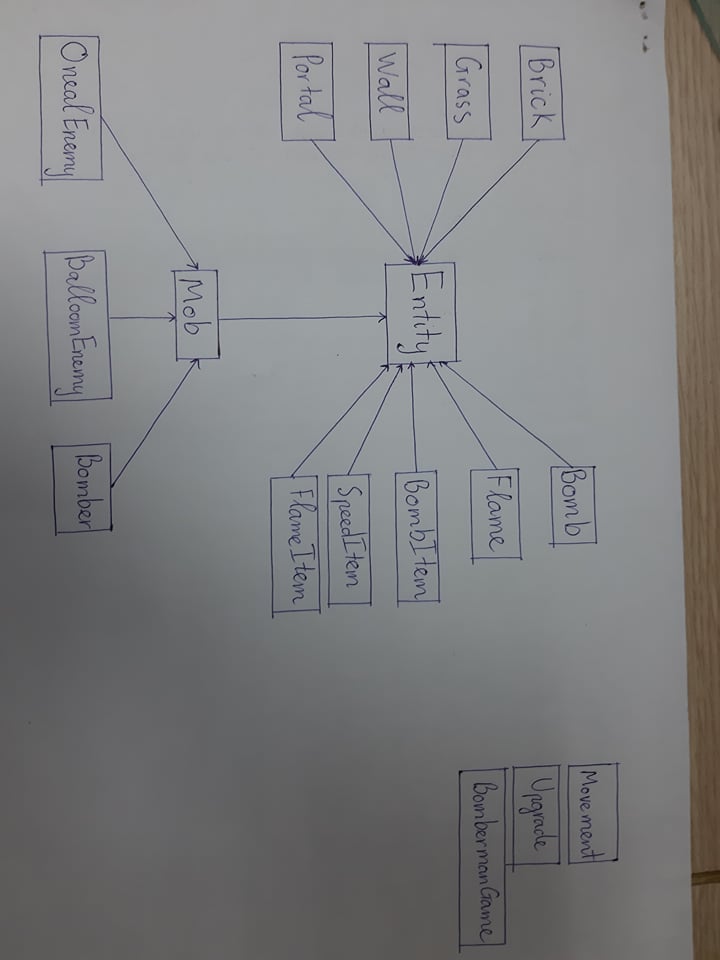 Brick
Grass
Wall
Portal
Entity
Bomb
Flame
BombItem
SpeedItem
FlameItem
Mob
OnealEnemy
BalloomEnemy
Bomber
Movement
Upgrade
BombermanGame